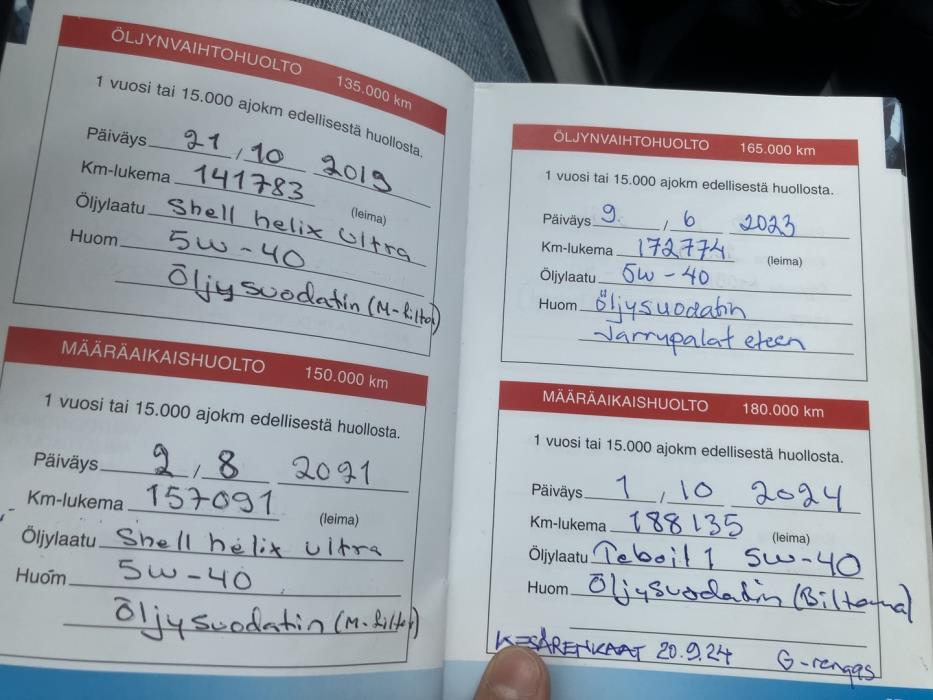 ÖLJYNVAIHTOHUOLTO 135.000 km
1 vuosi tai 15.000 ajokm edellisestä huollosta.
Päiväys 21 / 10 2019
Km-lukema 141783
(leima)
Öljylaatu Shell helix ultra
Huom 5w-40
Öljysuodatin (M-filter)
MÄÄRÄAIKAISHUOLTO 150.000 km
1 vuosi tai 15.000 ajokm edellisestä huollosta.
Päiväys 2 / 8 2021
Km-lukema 157091
(leima)
Öljylaatu Shell helix ultra
Huom 5w-40
Öljysuodatin (M-filter)
ÖLJYNVAIHTOHUOLTO 165.000 km
1 vuosi tai 15.000 ajokm edellisestä huollosta.
Päiväys 9. / 6 2023
Km-lukema 172774
(leima)
Öljylaatu 5w-40
Huom Öljysuodatin
Jarrupalat eteen
MÄÄRÄAIKAISHUOLTO 180.000 km
1 vuosi tai 15.000 ajokm edellisestä huollosta.
Päiväys 1 / 10 2024
Km-lukema 188135
(leima)
Öljylaatu Teboil 1 5w-40
Huom Öljysuodatin (Biltema)
KESÄRENKAAT 20.9.24 G-rengas